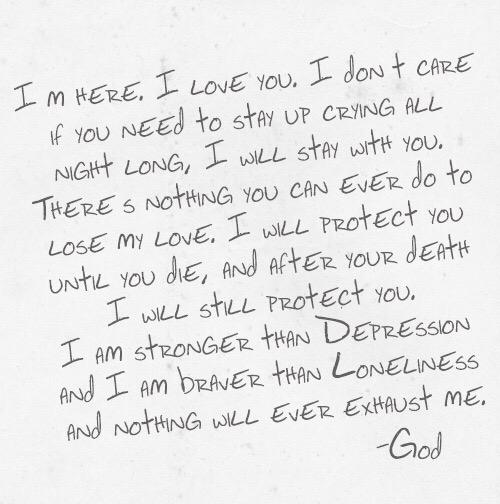 I m HERE. I LOVE YOU. I don t CARE
if YOU NEEd to stAY UP CRYING ALL
NIGHt LONG, I will stAY with YOU.
THERE s NOtHING YOU CAN EvER do to
LOSE MY LOVE. I will PROtEct YOU
UNtiL YOU diE, ANd AftER YOUR dEAtH
I will still PROtEct YOU.
I AM stRONGER tHAN DEPRESSION
ANd I AM bRAVER tHAN LONELINESS
ANd NOtHING will EvER ExHAUSt ME.
-God